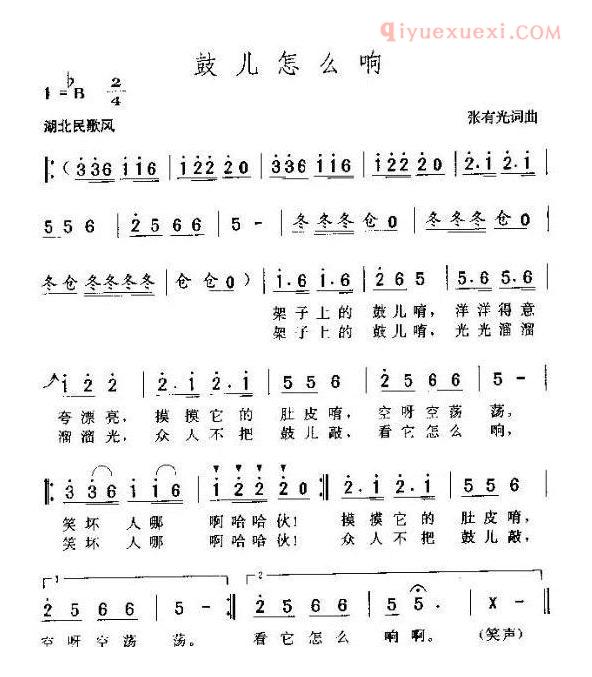 qiyuexuexi.COM
鼓儿怎么响
1=♭B 2/4
湖北民歌风
张有光词曲
(336 116 | 1222 20 | 336 116 | 1222 20 | 2.1 2.1 |
55 6 | 25 66 | 5 - | 冬冬冬 仓0 | 冬冬冬 仓0 |
冬仓 冬冬冬冬 | 仓仓0 ) | 1.6 1.6 | 26 5 | 5.6 5.6 |
架子上的 鼓儿唷, 洋洋得意
架子上的 鼓儿唷, 光光溜溜
12 2 | 2.1 2.1 | 55 6 | 25 66 | 5 - |
夸漂亮, 摸摸它的 肚皮唷, 空呀空荡 荡。
溜溜光, 众人不把 鼓儿敲, 看它怎么 响,
336 116 | 1222 20 | 2.1 2.1 | 55 6 |
笑坏 人哪 啊哈哈伙! 摸摸它的 肚皮唷,
笑坏 人哪 啊哈哈伙! 众人不把 鼓儿敲,
1 2
25 66 | 5 - | 25 66 | 5 5. | X - |
空呀空荡 荡。 看它怎么 响啊。 (笑声)